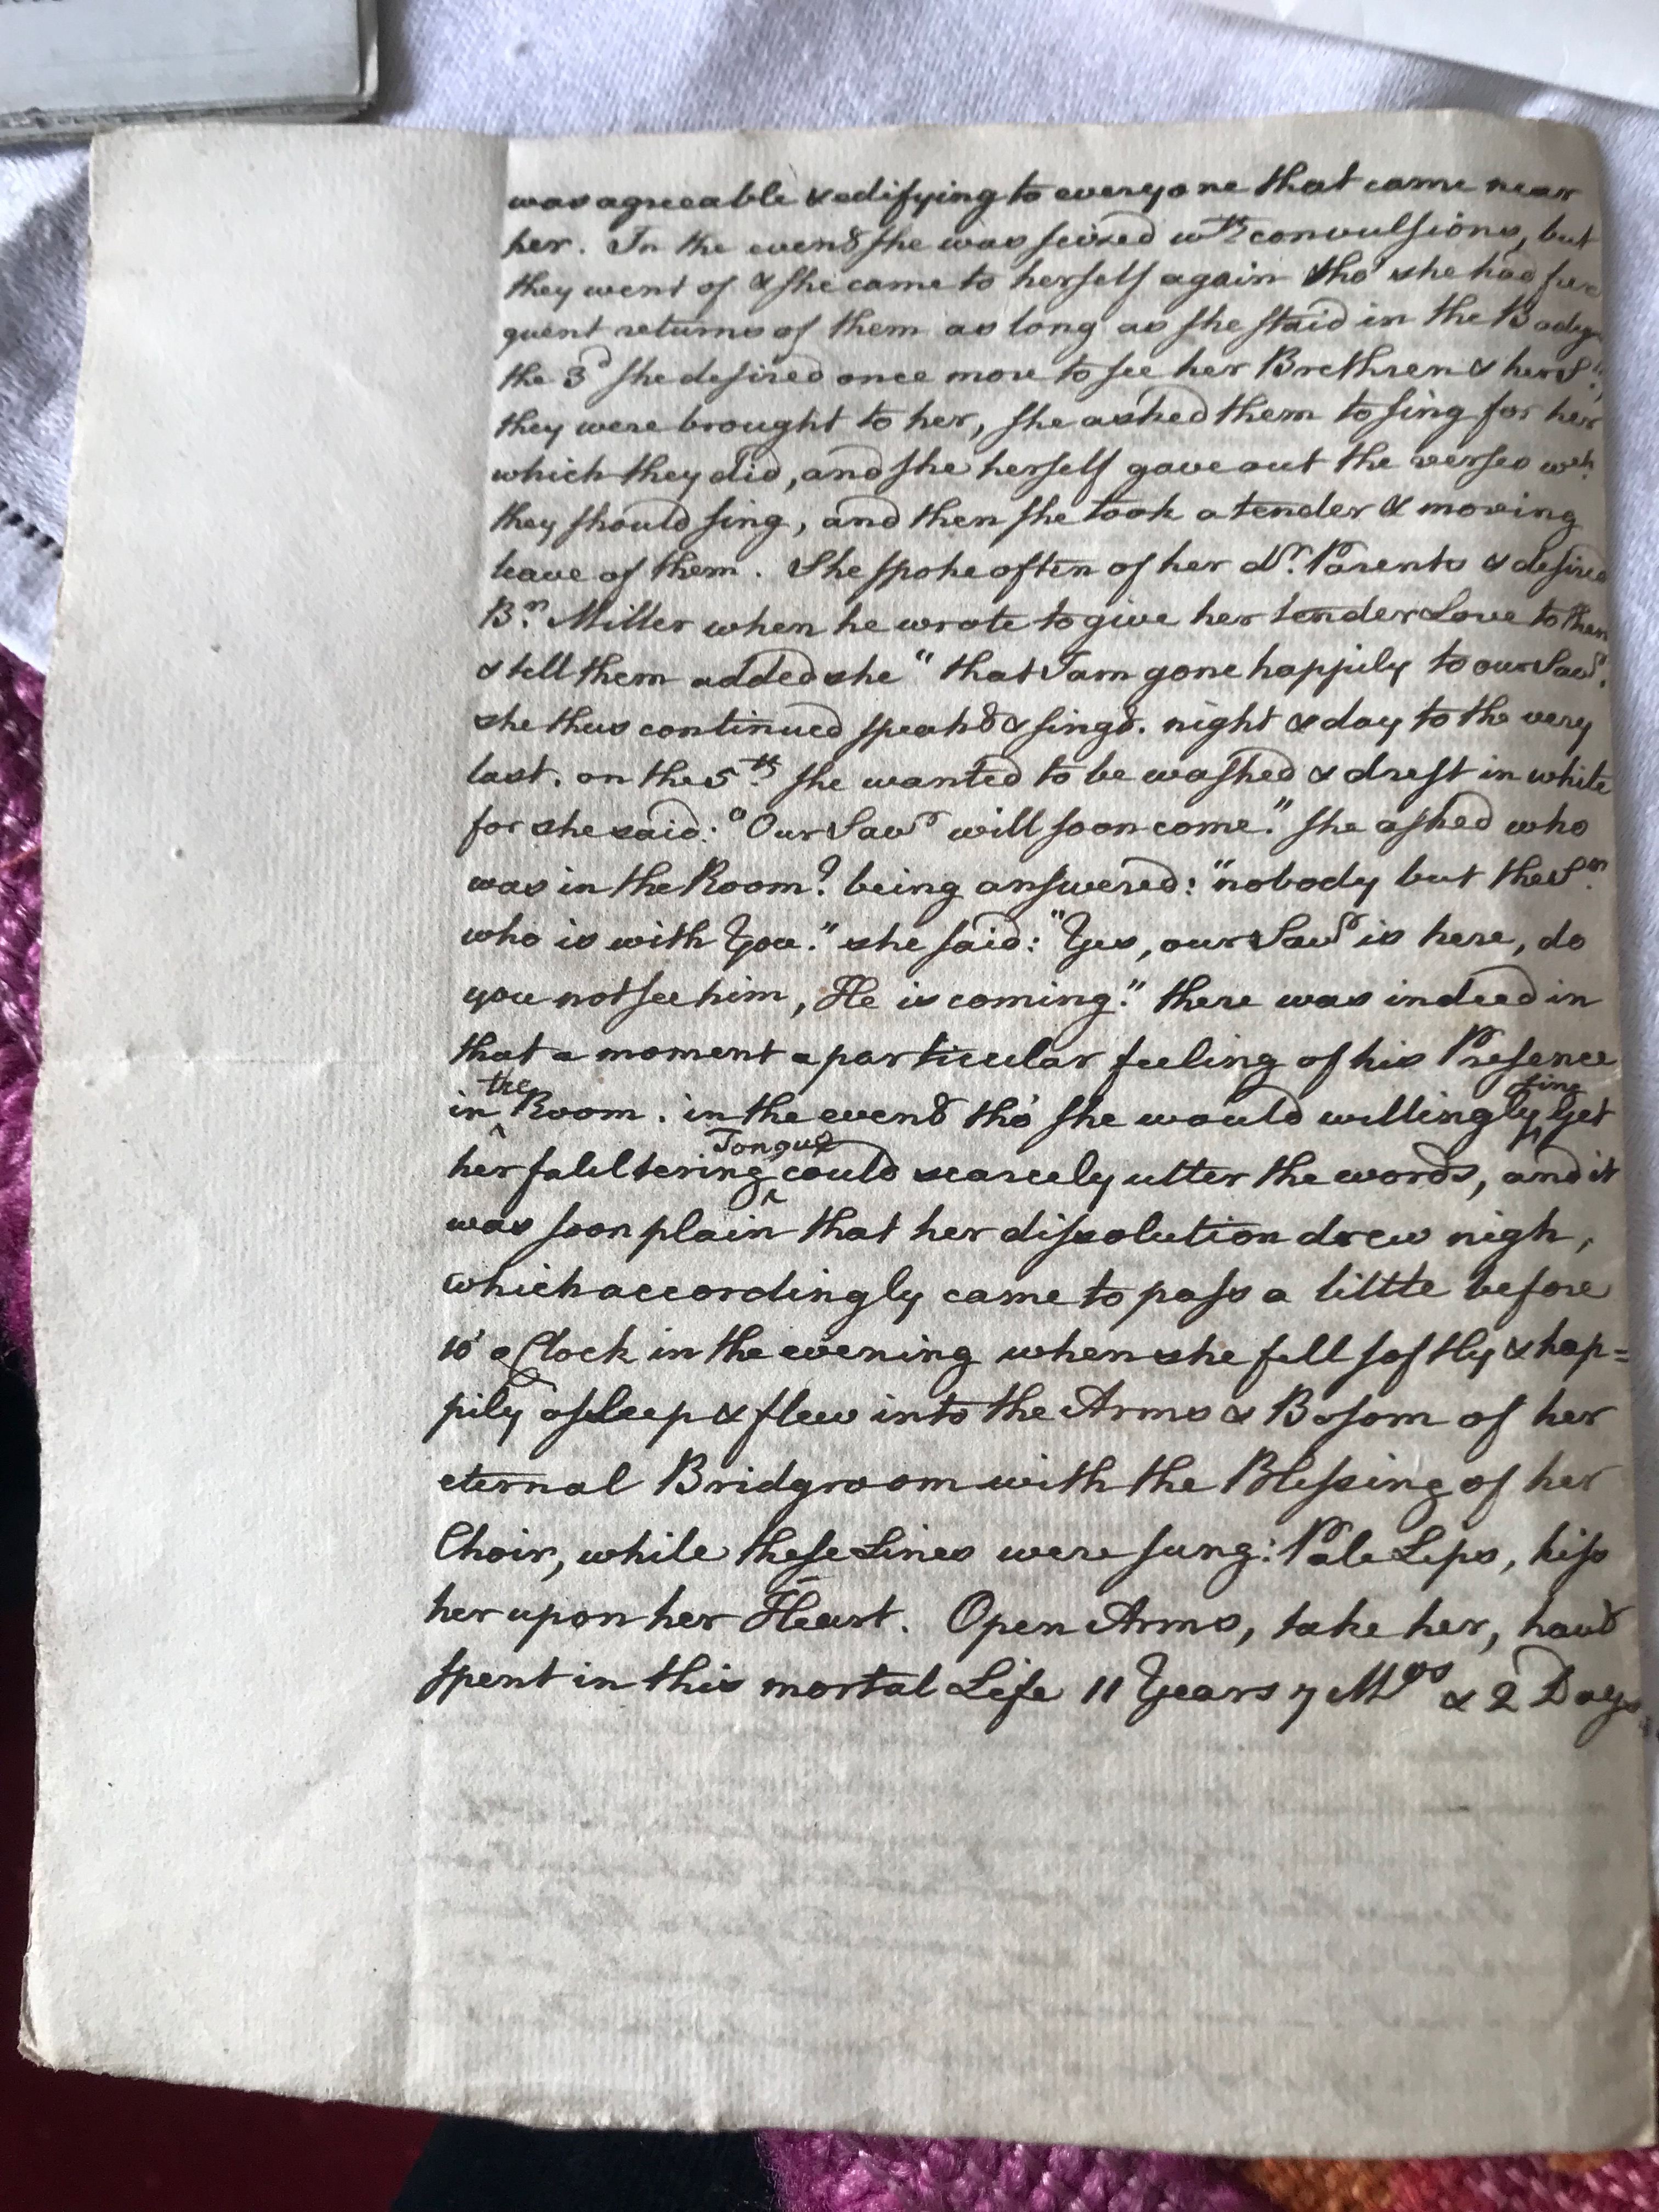 was agreeable & edifying to everyone that came near
her. In the eveng she was seized wth convulsions, but
they went of & she came to herself again tho' she had fre
quent returns of them as long as she staid in the Body
the 3d she desired once more to see her Brethren & her Srs,
they were brought to her, she asked them to sing for her
which they did, and she herself gave out the verses wch
they should sing, and then she took a tender & moving
leave of them. She spoke often of her dr. Parents & desired
Br. Miller when he wrote to give her tender Love to them
& tell them added she "that I am gone happily to our Savr.
she thus continued speakg & singg. night & day to the very
last. on the 5th she wanted to be washed & drest in white
for she said: "Our Savr will soon come." she asked who
was in the Room? being answered: "nobody but the Sr.
who is with You." she said: "Yes, our Savr is here, do
you not see him, He is coming." there was indeed in
that a moment a particular feeling of his Presence
in ^the Room. in the eveng tho' she would willingly ^sing Yet
her faleltering ^Tongue could scarcely utter the words, and it
was soon plain that her dissolution drew nigh,
which accordingly came to pass a little before
10 o'Clock in the evening when she fell softly & hap=
pily asleep & flew into the Arms & Bosom of her
eternal Bridgroom with the Blessing of her
Choir, while these Lines were sung: Pale Lips, kiss
her upon her Heart. Open Arms, take her, havg
spent in this mortal Life 11 Years 7 Mos & 2 Days.